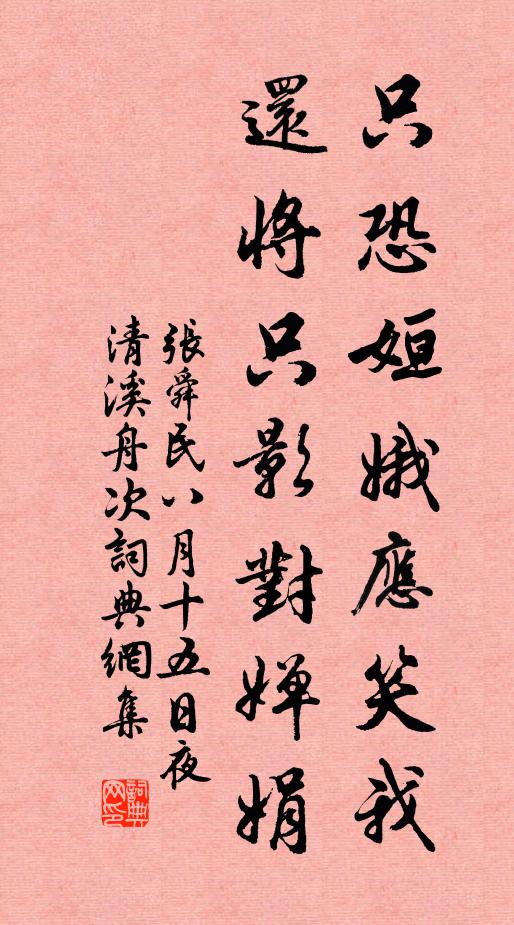 只恐姮娥應笑我
還將只影對嬋娟
張舜民八月十五日夜
清溪舟次詞典網集
詞典網印